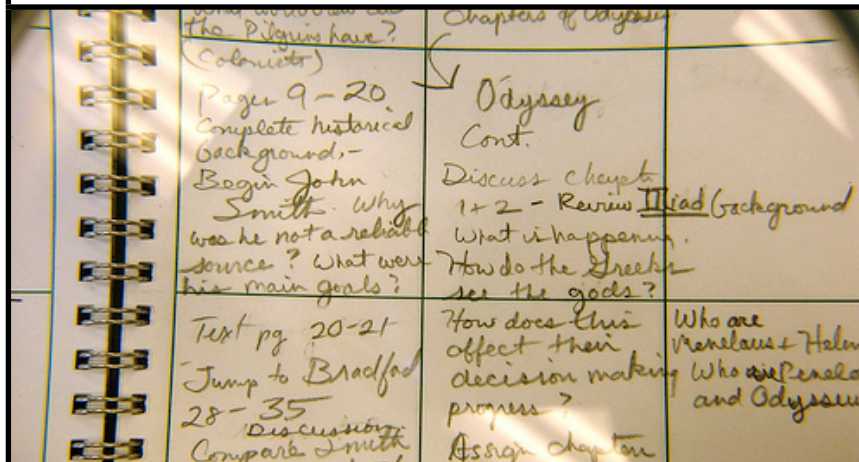 the Pilgrims have?
(Colonists)
Pages 9-20
Complete historical
background,-
Begin John
Smith. Why
was he not a reliabl
source? What were
his main goals?
Text pg 20-21
Jump to Bradford
28-35
Discussion
Compare Smith
Chapters of Odyssey
Odyssey
Cont.
Discuss chapt
1+2 - Review Iliad background
What is happenin.
How do the Greeks
see the gods?
How does this
affect their
decision making
progress?
Assign chapters
Who are
Menelaus + Helen
Who are Penelo
and Odysseu